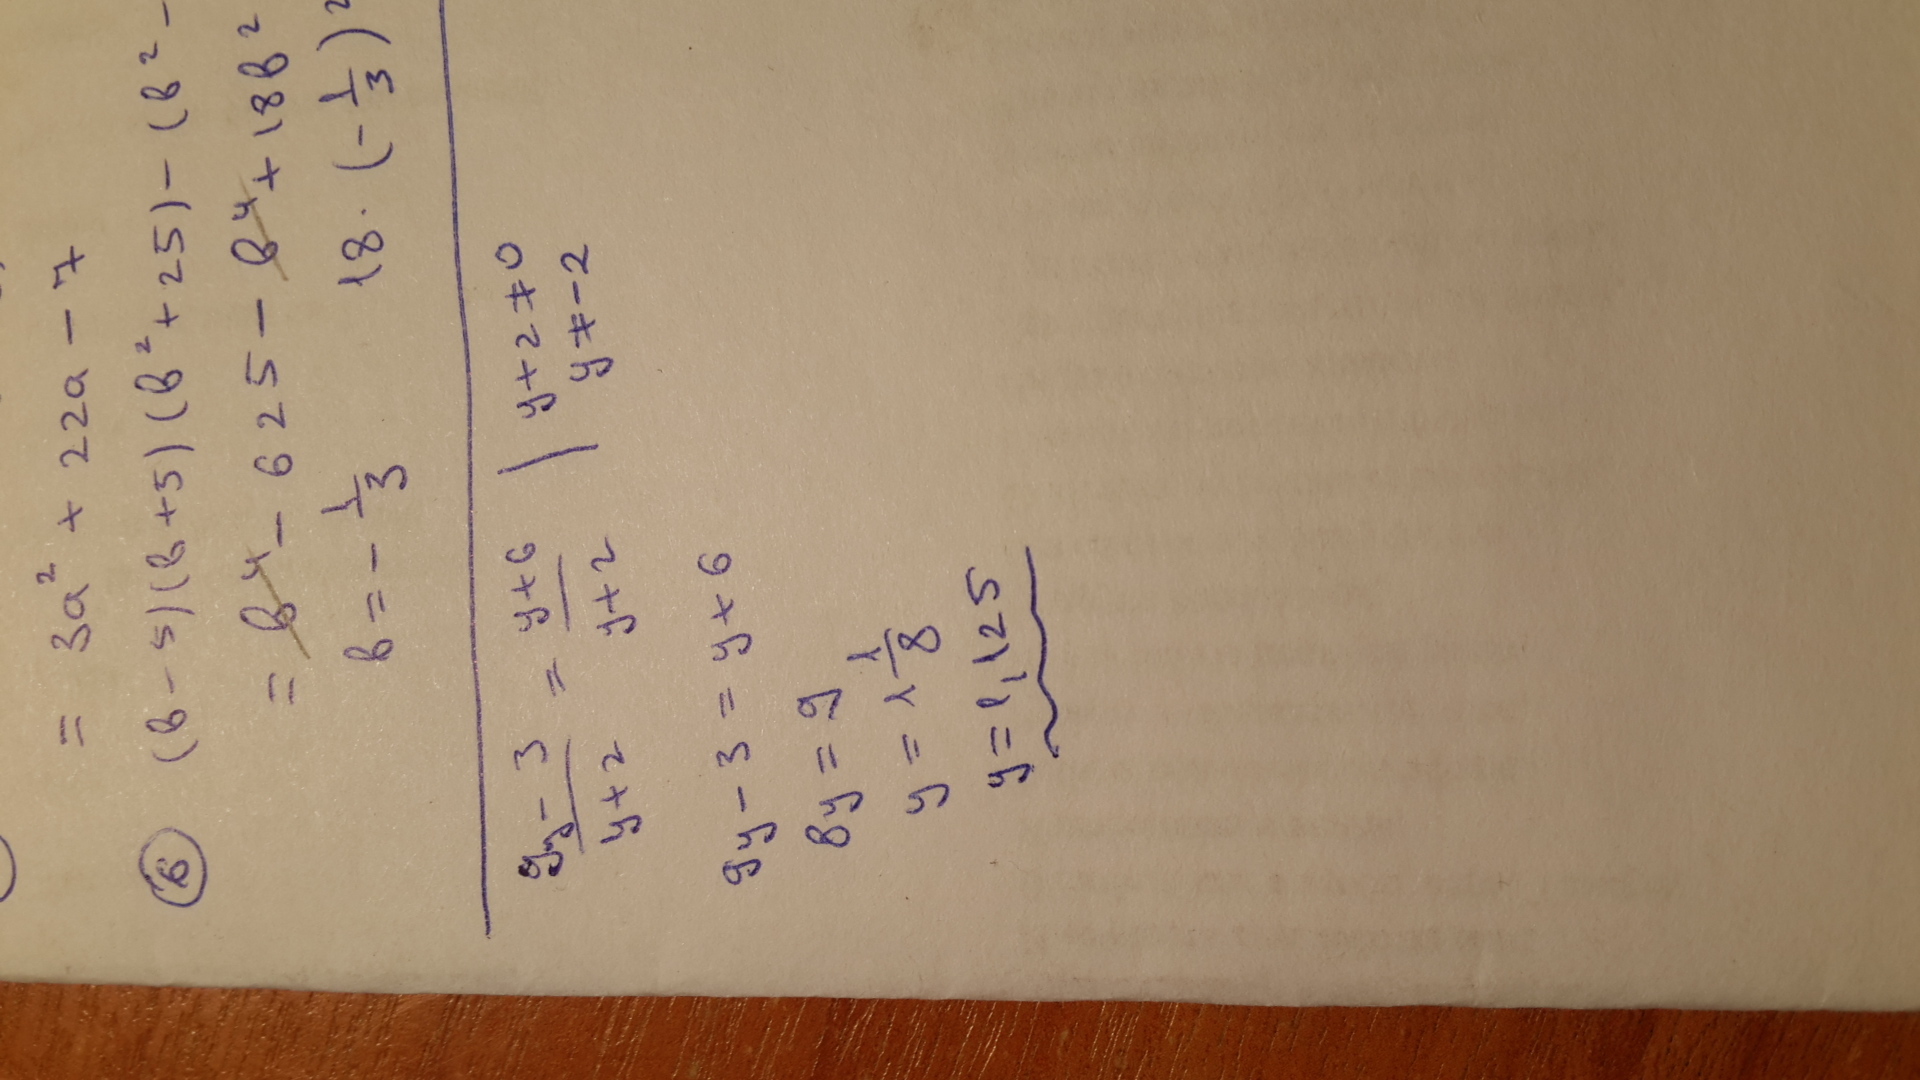 = 3a² + 22a - 7
б (в-5)(в+5)(в²+25)-(в²-
= в⁴-625-в⁴+18в²
в=-1/3 18·(-1/3)²
9y-3/y+2 = y+6/y+2 | y+2≠0
y≠-2
9y-3=y+6
8y=9
y=1 1/8
y=1,125